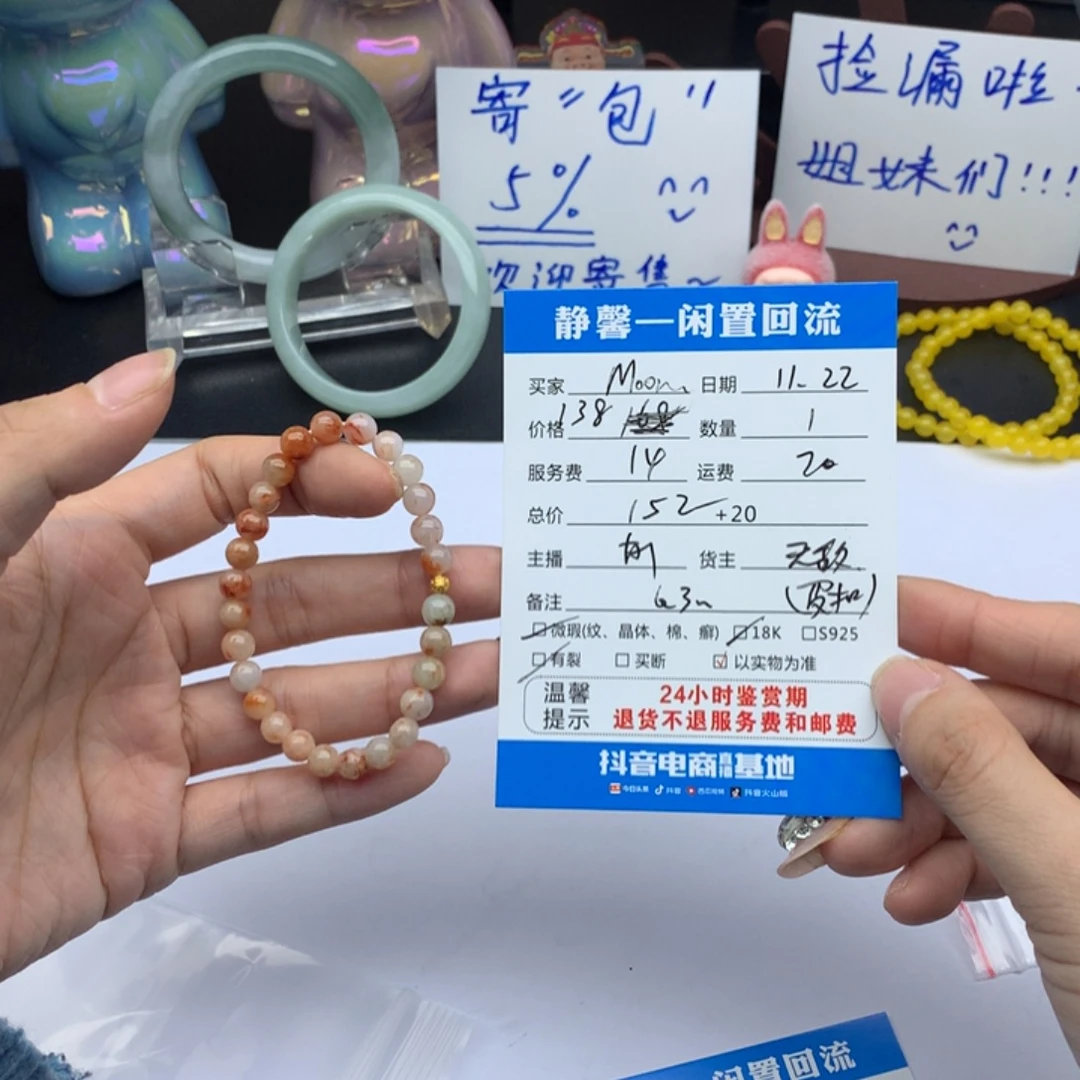 寄“包”
5%
欢迎寄售~
捡漏啦
姐妹们!!!
静馨—闲置回流
买家 Moon 日期 11-22
价格 138 数量 1
服务费 14 运费 20
总价 152 +20
主播 货主 无敌
备注
微瑕(纹、晶体、棉、癣) 18K S925
有裂 买断 以实物为准
温馨提示
24小时鉴赏期
退货不退服务费和邮费
抖音电商直播基地
今日头条 抖音 西瓜视频 抖音火山版
闲置回流